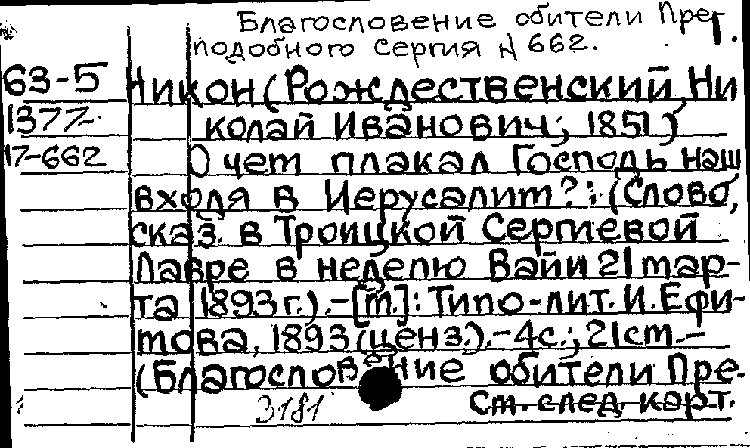 Благословение обители Преп.
подобного Сергия № 662.
63-5 Никон (Рождественский, Ни
1377 колай Иванович; 1851)
17-662 О чем плакал Господь наш
входя в Иерусалим?: (Слово,
сказ. в Троицкой Сергиевой
Лавре в неделю Ваий 21 мар-
та 1893 г.).-[М.]: Типо-лит. И. Ефи-
мова, 1893 (ценз.).-4с.; 21см.-
(Благословение обители Пре-
3181 См. след. карт.